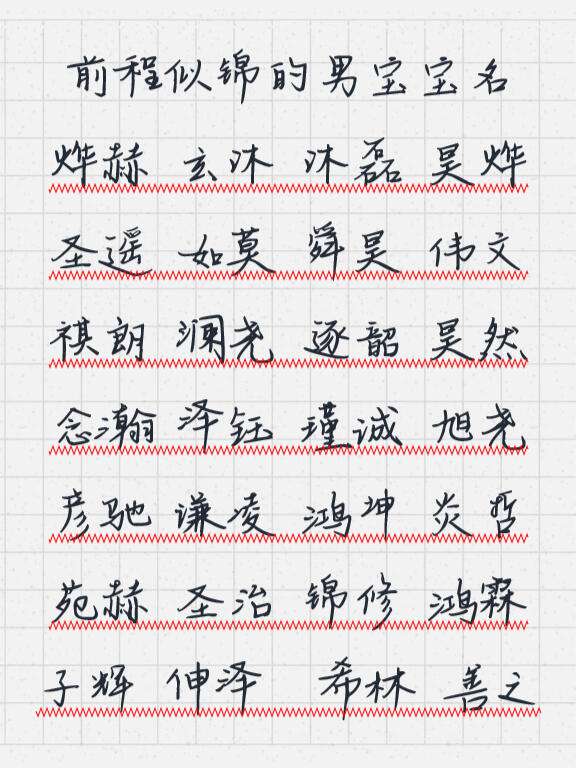 前程似锦的男宝宝名
烨赫 玄沐 沐磊 昊烨
圣遥 如莫 舜昊 伟文
祺朗 澜尧 逐韶 昊然
念瀚 泽钰 瑾诚 旭尧
彦驰 谦凌 鸿坤 炎哲
苑赫 圣治 锦修 鸿霖
子辉 伸泽 希林 善之